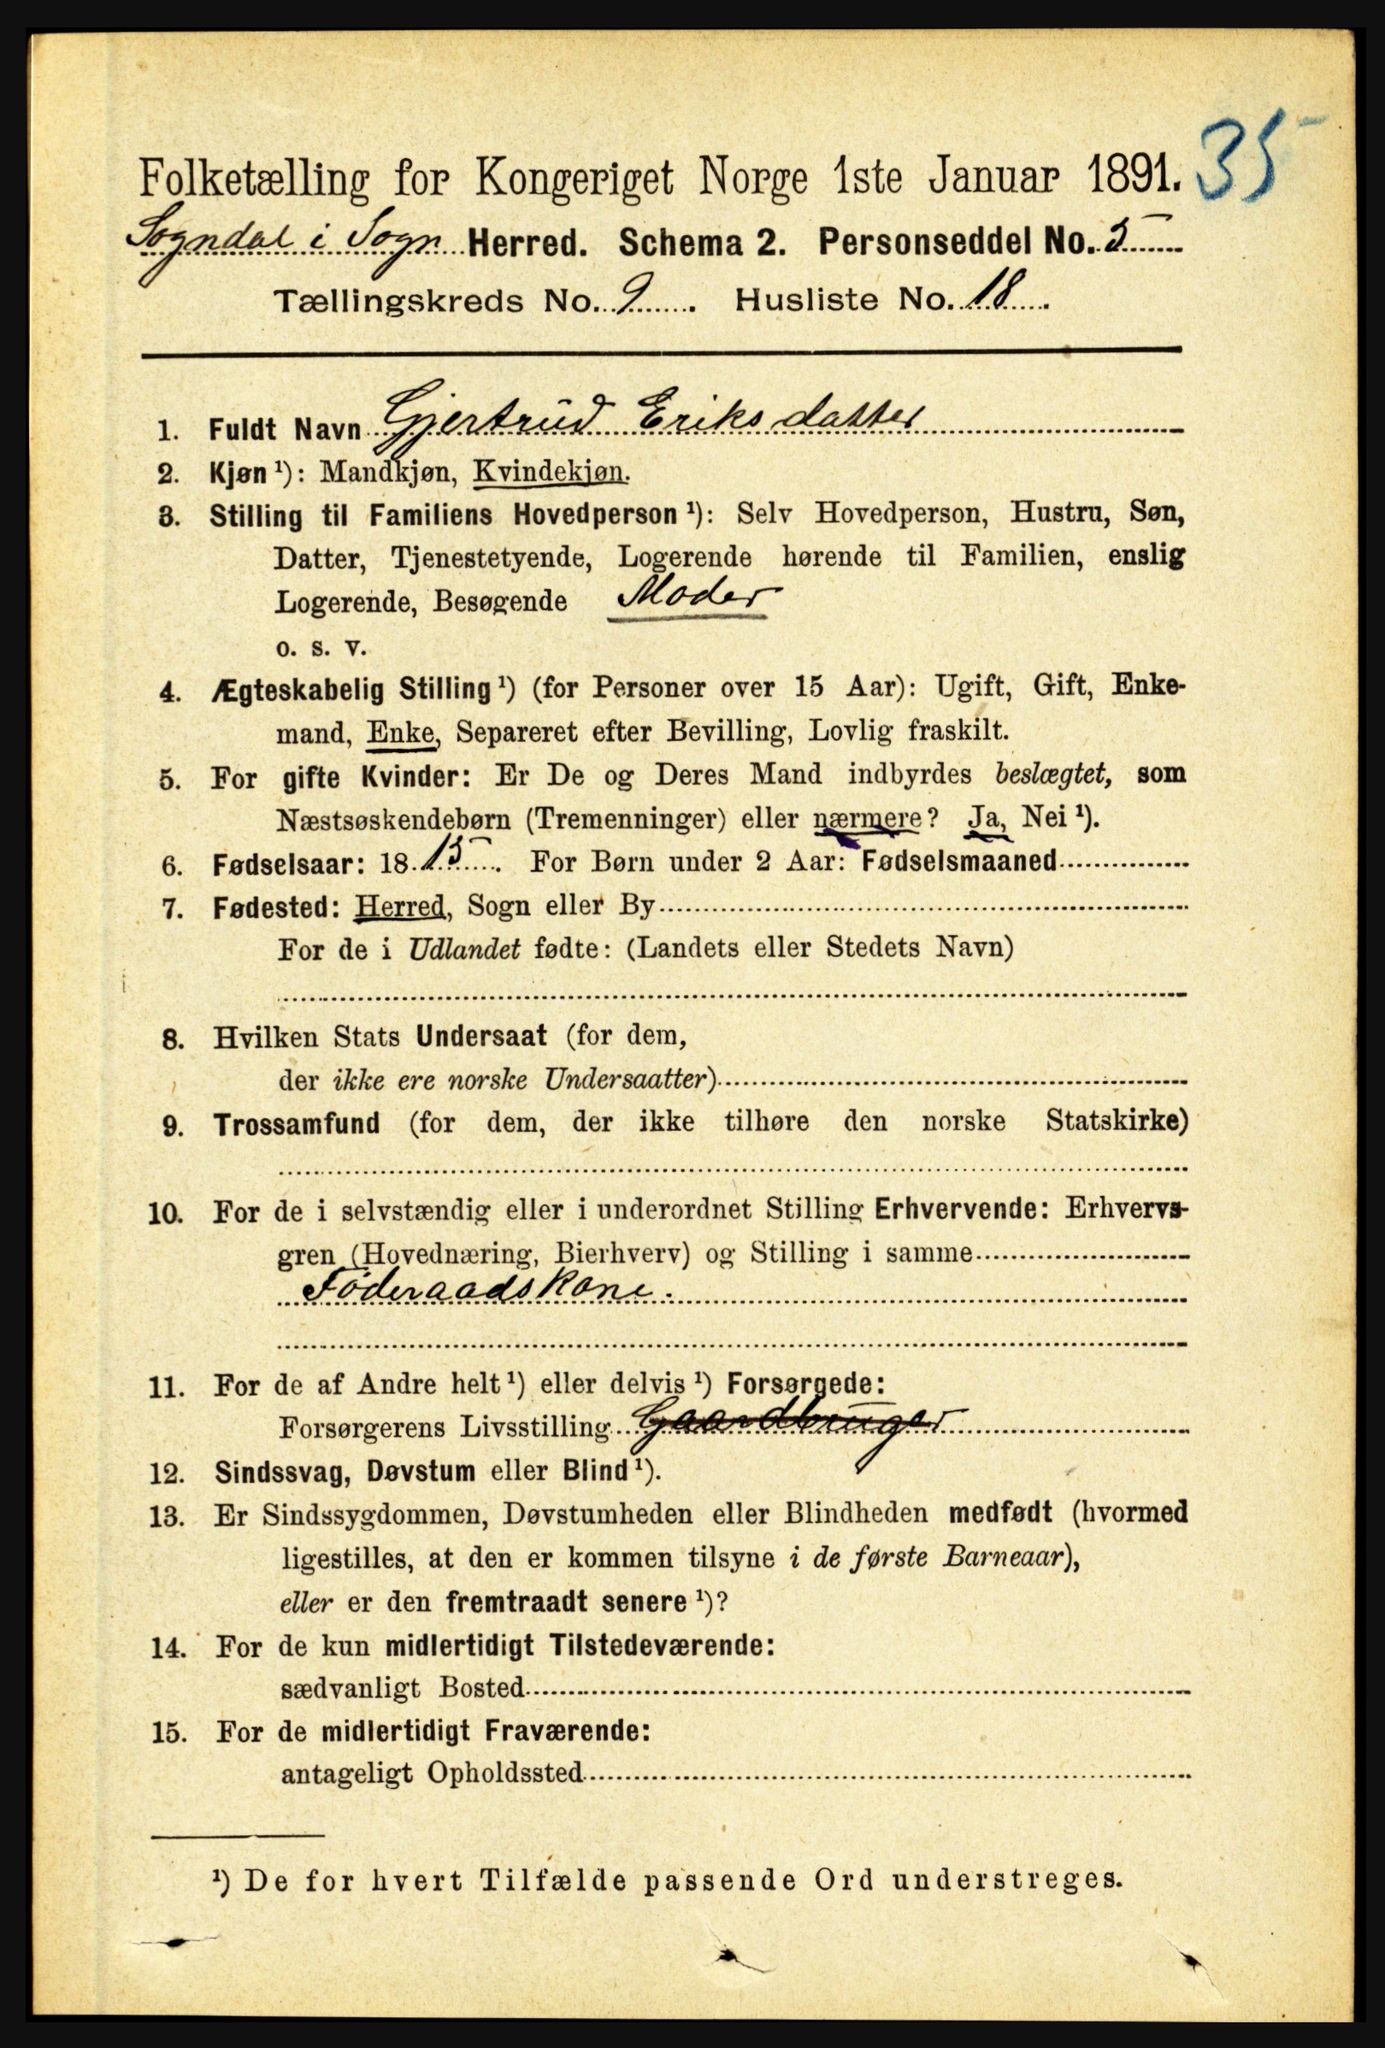 35
Folketælling for Kongeriget Norge 1ste Januar 1891.
Sogndal i Sogn Herred. Schema 2. Personseddel No. 5
Tællingskreds No. 9. Husliste No. 18.
1. Fuldt Navn Gjertrud Eriksdatter
2. Kjøn ¹): Mandkjøn, Kvindekjøn.
3. Stilling til Familiens Hovedperson ¹): Selv Hovedperson, Hustru, Søn,
Datter, Tjenestetyende, Logerende hørende til Familien, enslig
Logerende, Besøgende Moder
o. s. v.
4. Ægteskabelig Stilling ¹) (for Personer over 15 Aar): Ugift, Gift, Enke-
mand, Enke, Separeret efter Bevilling, Lovlig fraskilt.
5. For gifte Kvinder: Er De og Deres Mand indbyrdes beslægtet, som
Næstsøskendebørn (Tremenninger) eller nærmere? Ja, Nei ¹).
6. Fødselsaar: 18 15. For Børn under 2 Aar: Fødselsmaaned
7. Fødested: Herred, Sogn eller By
For de i Udlandet fødte: (Landets eller Stedets Navn)
8. Hvilken Stats Undersaat (for dem,
der ikke ere norske Undersaatter)
9. Trossamfund (for dem, der ikke tilhøre den norske Statskirke)
10. For de i selvstændig eller i underordnet Stilling Erhvervende: Erhvervs-
gren (Hovednæring, Bierhverv) og Stilling i samme
Föderaadskone.
11. For de af Andre helt ¹) eller delvis ¹) Forsørgede:
Forsørgerens Livsstilling Gaardbruger
12. Sindssvag, Døvstum eller Blind ¹).
13. Er Sindssygdommen, Døvstumheden eller Blindheden medfødt (hvormed
ligestilles, at den er kommen tilsyne i de første Barneaar),
eller er den fremtraadt senere ¹)?
14. For de kun midlertidigt Tilstedeværende:
sædvanligt Bosted
15. For de midlertidigt Fraværende:
antageligt Opholdssted
¹) De for hvert Tilfælde passende Ord understreges.